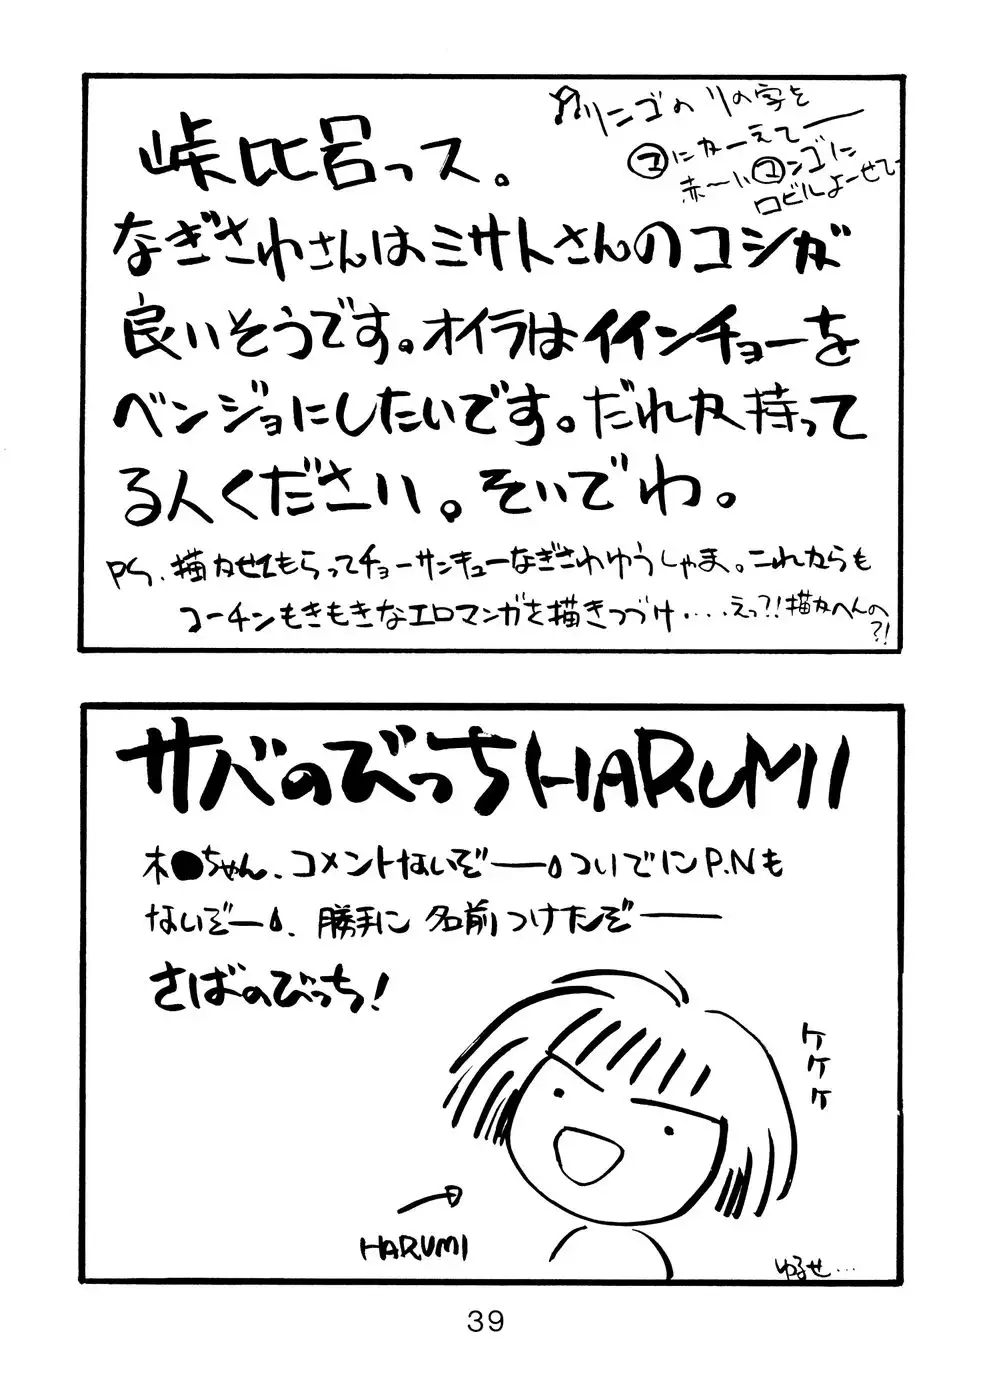 峠比呂っス。
リンゴの リの字を
マにかーえてー
赤〜いマンゴに
口ビルよーせてー
なぎさわさんはミサトさんのコシが
良いそうです。オイラはイインチョーを
ベンジョにしたいです。だれカ持って
る人ください。そいでわ。
PS. 描カせてもらってチョーサンキューなぎさわゆうしゃま。これカらも
コーチンもきもきなエロマンガを描きつづけ・・・・えっ?!描カへんの
?!
サバのびっちHARUMI
木●ちゃん、コメントないぞー。ついでにP.Nも
ないぞー。勝手に 名前つけたぞー
さばのびっち!
ケケケ
HARUMI
ゆるせ…
39